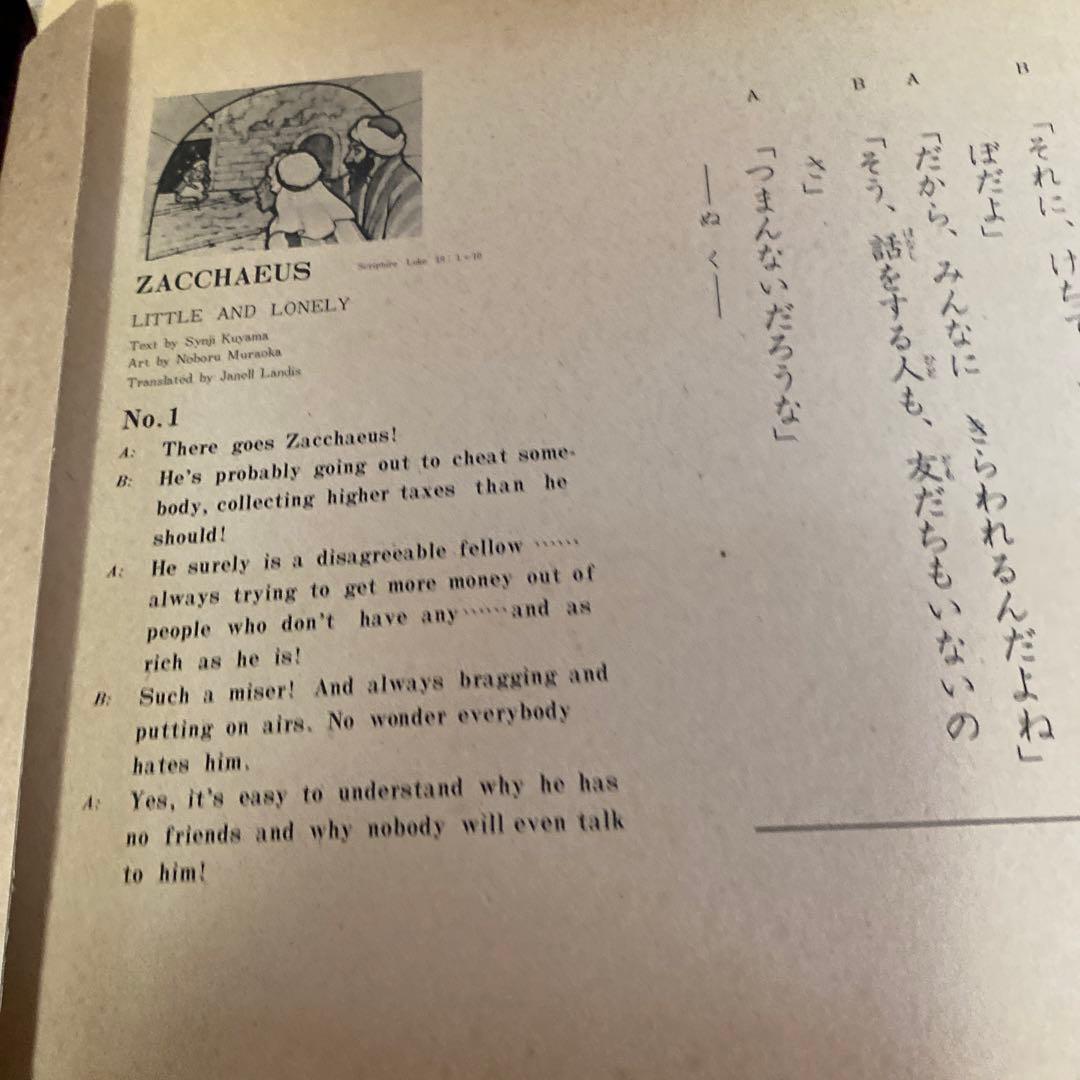 ZACCHAEUS
Scripture Luke
LITTLE AND LONELY
Text by Synji Kuyama
Art by Noboru Muraoka
Translated by Janell Landis
No.1
A: There goes Zacchaeus!
B: He's probably going out to cheat some-
body, collecting higher taxes than he
should!
A: He surely is a disagreeable fellow ……
always trying to get more money out of
people who don't have any……and as
rich as he is!
B: Such a miser! And always bragging and
putting on airs. No wonder everybody
hates him.
A: Yes, it's easy to understand why he has
no friends and why nobody will even talk
to him!
B 「それに、けち
ぼだよ」
A 「だから、みんなに きらわれるんだよね」
B 「そう、話をする人も、友だちもいないの
さ」
A 「つまんないだろうな」
——ぬ く——